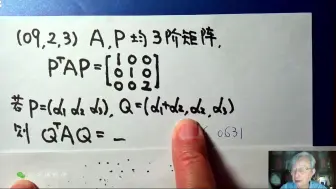 (09,2,3) A,P均3阶矩阵,
PᵀAP=[1 0 0
0 1 0
0 0 2]
若P=(α₁ α₂ α₃), Q=(α₁+α₂,α₂,α₃)
则 QᵀAQ=_
0631